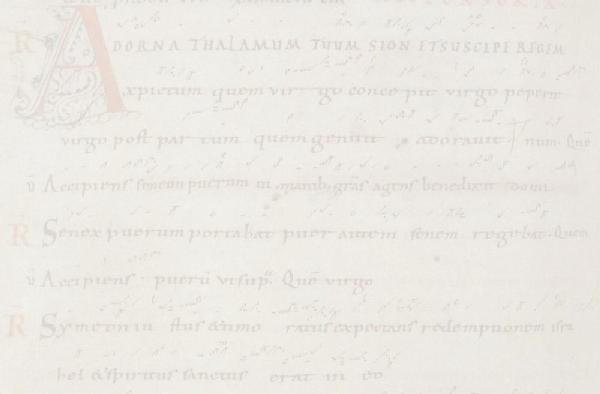 R ADORNA THALAMUM TUUM SION ET SUSCIPE REGEM
xpictum quem vir go conce pit virgo peperit
virgo post par tum quem genuit adoravit num. Quē
v Accipiens simeon puerum in manib; grās agens benedixit dom
R Senex puerum portabat puer autem senem regebat. Quem
v Accipiens puerū ut supͣ. Quē virgo
R Symeon iu stus & timo ratus expectans redemptionem isra
hel & spiritus sanctus erat in eo